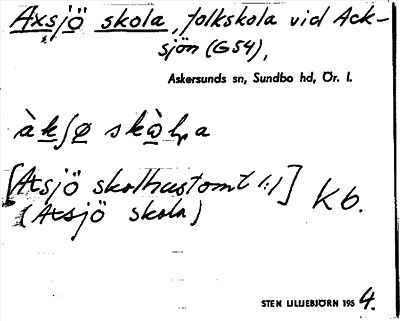 Axsjö skola, folkskola vid Ack-
sjön (G54),
Askersunds sn, Sundbo hd, Ör. l.
àkʃø skɷ̀lɹa
[Axsjö skolhustomt 1:1] Kb.
(Axsjö skola)
STEN LILLIEBJÖRN 1954.